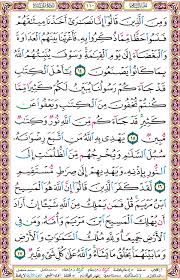 ١١٠
وَمِنَ ٱلَّذِينَ قَالُوٓا۟ إِنَّا نَصَـٰرَىٰٓ أَخَذْنَا مِيثَـٰقَهُمْ
فَنَسُوا۟ حَظًّا مِّمَّا ذُكِّرُوا۟ بِهِۦ فَأَغْرَيْنَا بَيْنَهُمُ ٱلْعَدَاوَةَ
وَٱلْبَغْضَآءَ إِلَىٰ يَوْمِ ٱلْقِيَـٰمَةِ ۚ وَسَوْفَ يُنَبِّئُهُمُ ٱللَّهُ
بِمَا كَانُوا۟ يَصْنَعُونَ ١٤ يَـٰٓأَهْلَ ٱلْكِتَـٰبِ
قَدْ جَآءَكُمْ رَسُولُنَا يُبَيِّنُ لَكُمْ كَثِيرًا مِّمَّا
كُنتُمْ تُخْفُونَ مِنَ ٱلْكِتَـٰبِ وَيَعْفُوا۟ عَن كَثِيرٍ ۚ
قَدْ جَآءَكُم مِّنَ ٱللَّهِ نُورٌ وَكِتَـٰبٌ
مُّبِينٌ ١٥ يَهْدِى بِهِ ٱللَّهُ مَنِ ٱتَّبَعَ رِضْوَٰنَهُۥ
سُبُلَ ٱلسَّلَـٰمِ وَيُخْرِجُهُم مِّنَ ٱلظُّلُمَـٰتِ إِلَى
ٱلنُّورِ بِإِذْنِهِۦ وَيَهْدِيهِمْ إِلَىٰ صِرَٰطٍ مُّسْتَقِيمٍ ١٦
لَّقَدْ كَفَرَ ٱلَّذِينَ قَالُوٓا۟ إِنَّ ٱللَّهَ هُوَ ٱلْمَسِيحُ
ٱبْنُ مَرْيَمَ ۚ قُلْ فَمَن يَمْلِكُ مِنَ ٱللَّهِ شَيْـًٔا إِنْ أَرَادَ
أَن يُهْلِكَ ٱلْمَسِيحَ ٱبْنَ مَرْيَمَ وَأُمَّهُۥ وَمَن فِى
ٱلْأَرْضِ جَمِيعًا ۗ وَلِلَّهِ مُلْكُ ٱلسَّمَـٰوَٰتِ وَٱلْأَرْضِ
وَمَا بَيْنَهُمَا ۚ يَخْلُقُ مَا يَشَآءُ ۚ وَٱللَّهُ عَلَىٰ كُلِّ شَىْءٍ قَدِيرٌ ١٧